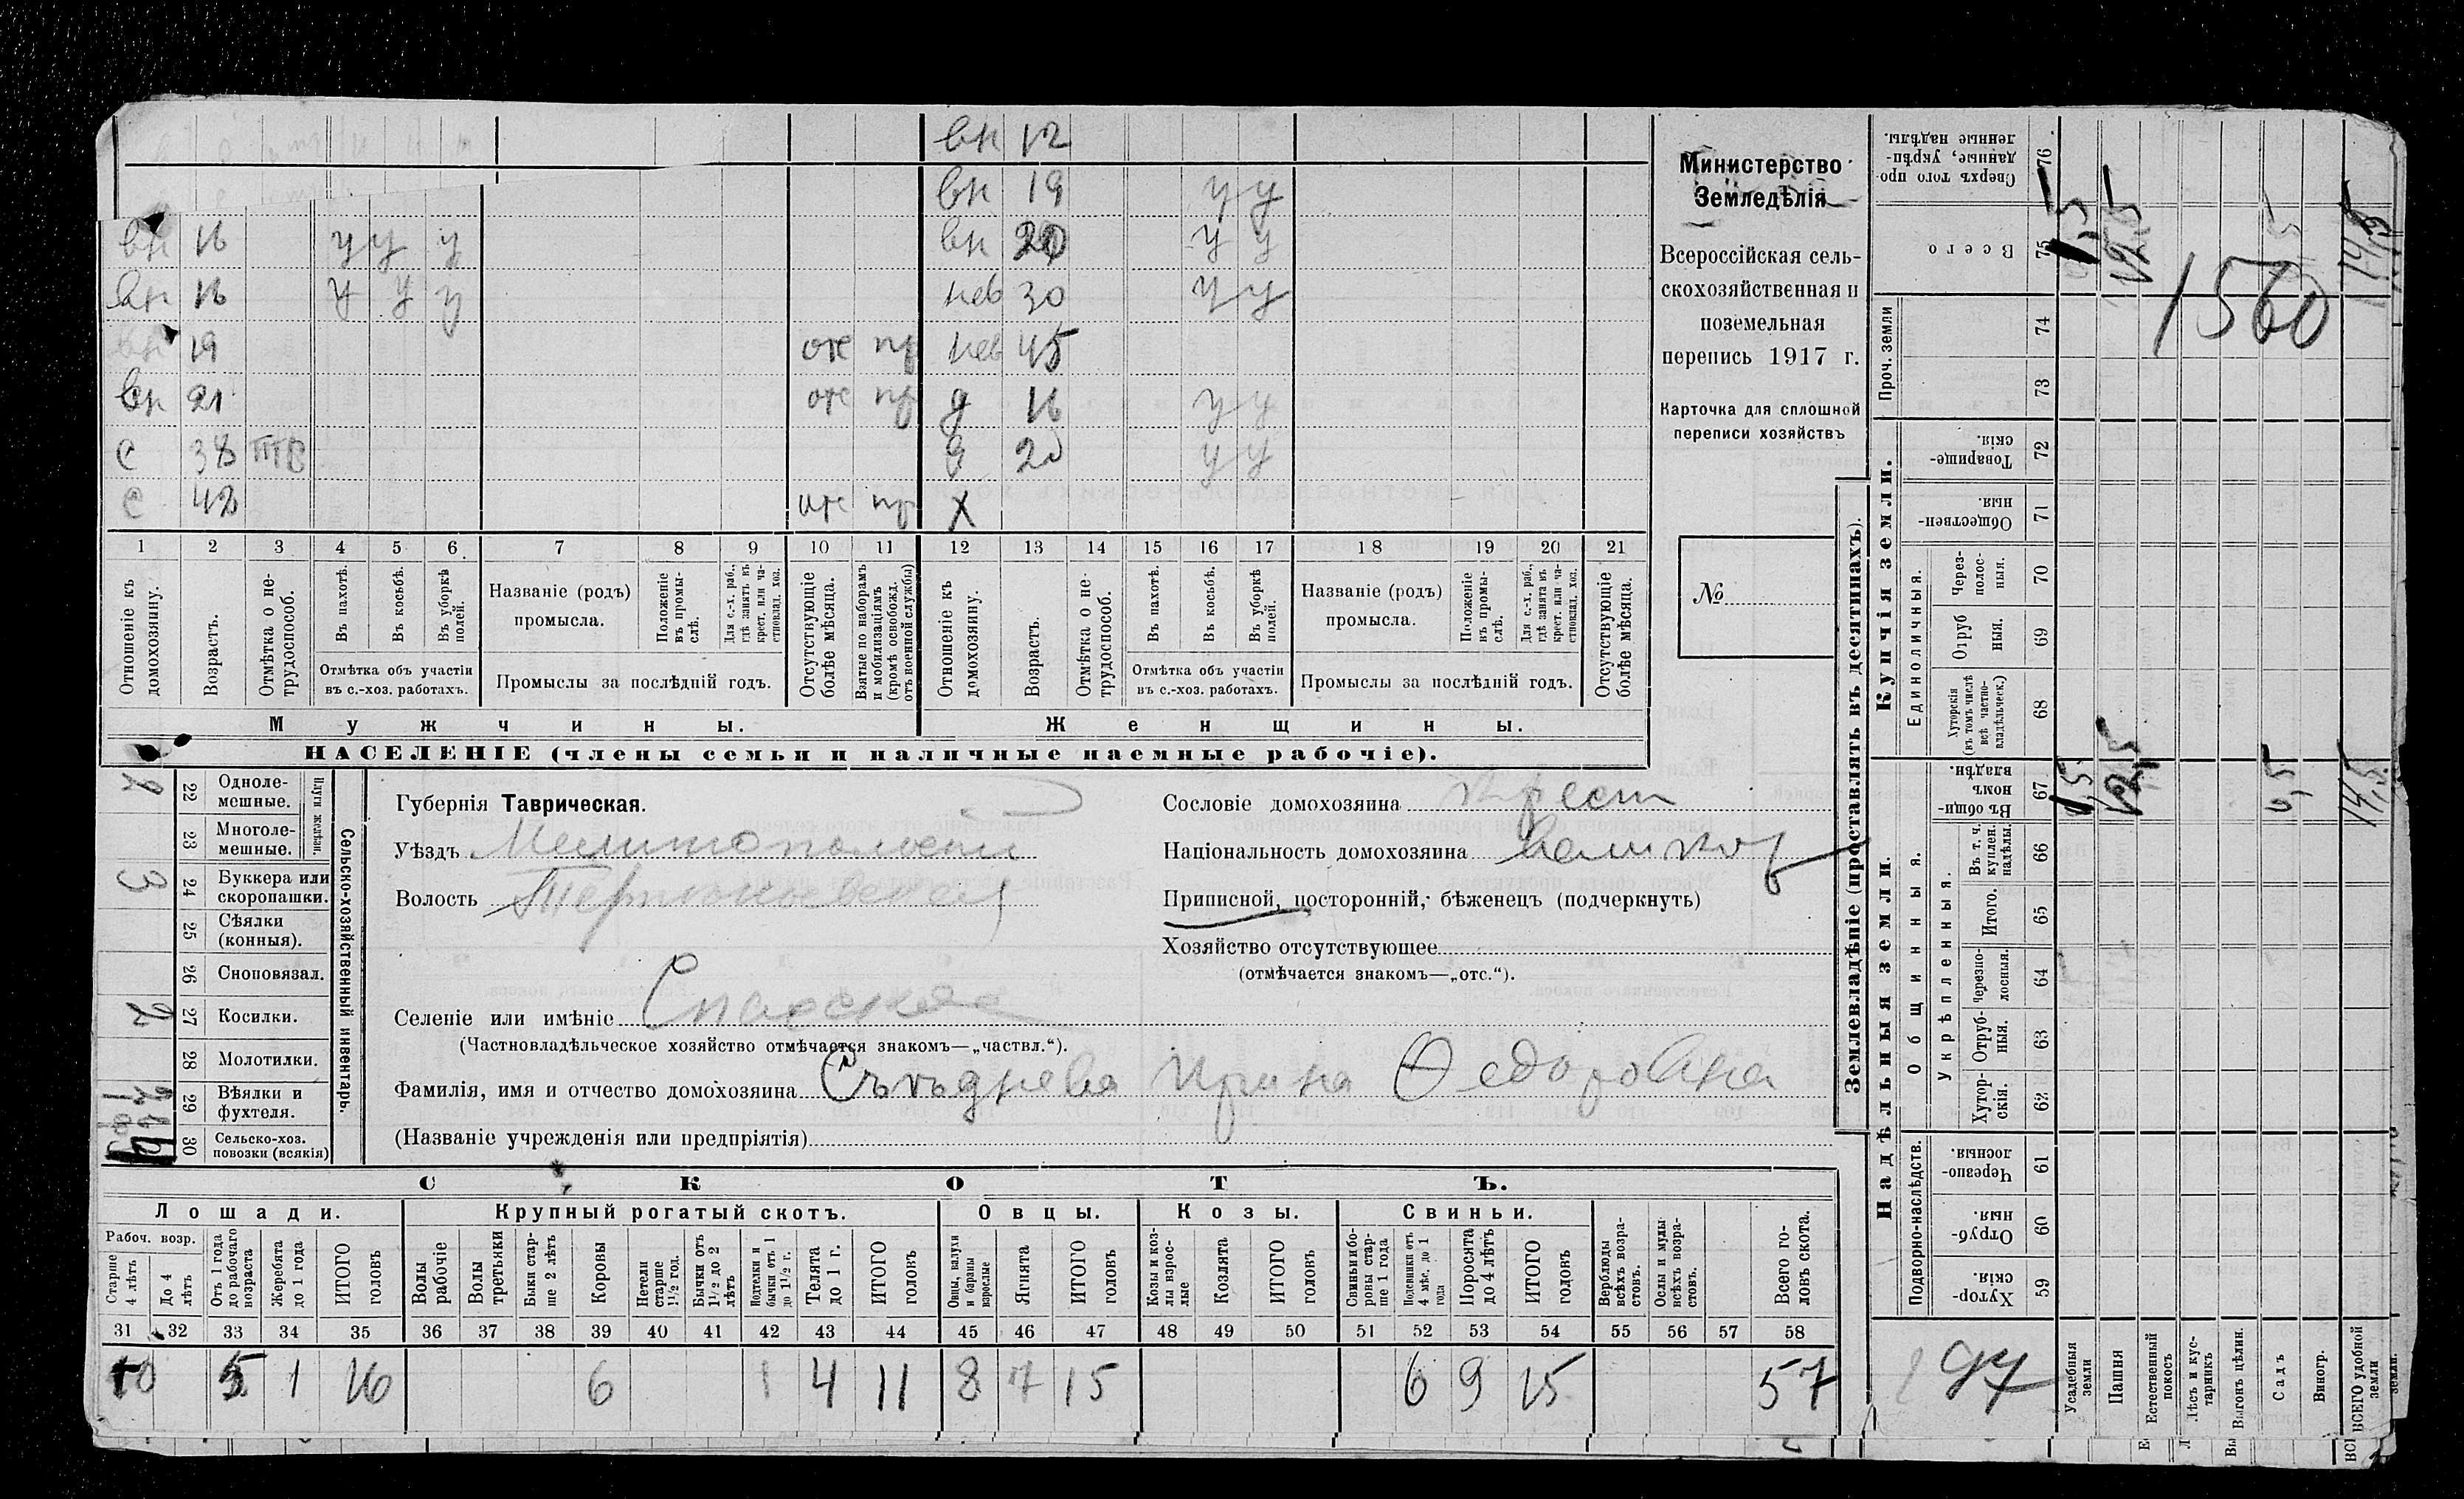 вн 12
вн 19 у у
вн 16 у у у вн 20 у у
вн 16 у у у нев 30 у у
вн 19 отс пр нев 45
вн 21 отс пр д 16 у у
с 38 д 20 у у
с 42 отс пр х
1 2 3 4 5 6 7 8 9 10 11 12 13 14 15 16 17 18 19 20 21
Отношеніе къ домохозяину.
Возрастъ.
Отмѣтка о не-трудоспособ.
Въ пахотѣ.
Въ косьбѣ.
Въ уборкѣ полей.
Отмѣтка объ участіи въ с.-хоз. работахъ.
Названіе (родъ) промысла.
Положеніе въ промы-слѣ.
Для с.-х. раб., гдѣ занятъ въ крест. или ча-стновлад. хоз.
Промыслы за послѣдній годъ.
Отсутствующіе болѣе мѣсяца.
Взятые по наборамъ и мобилизаціямъ (кромѣ освобожд. отъ военной службы)
Отношеніе къ домохозяину.
Возрастъ.
Отмѣтка о не-трудоспособ.
Въ пахотѣ.
Въ косьбѣ.
Въ уборкѣ полей.
Отмѣтка объ участіи въ с.-хоз. работахъ.
Названіе (родъ) промысла.
Положеніе въ промы-слѣ.
Для с.-х. раб., гдѣ занята въ крест. или ча-стновлад. хоз.
Промыслы за послѣдній годъ.
Отсутствующіе болѣе мѣсяца.
Мужчины. Женщины.
НАСЕЛЕНІЕ (члены семьи и наличные наемные рабочіе).
Министерство
Земледѣлія
Всероссійская сель-
скохозяйственная и
поземельная
перепись 1917 г.
Карточка для сплошной
переписи хозяйствъ
№
Сельско-хозяйственный инвентарь.
Плуги желѣзн.
22 Одноле-мешные. 2
23 Многоле-мешные.
24 Буккера или скоропашки. 3
25 Сѣялки (конныя).
26 Сноповязал.
27 Косилки. 2
28 Молотилки.
29 Вѣялки и фухтеля. 1
30 Сельско-хоз. повозки (всякія)
Губернія Таврическая.
Уѣздъ Мелитопольскій
Волость
Селеніе или имѣніе Спасское
(Частновладѣльческое хозяйство отмѣчается знакомъ—„частвл.“).
Фамилія, имя и отчество домохозяина Ирина Ѳедоровна
(Названіе учрежденія или предпріятія)
Сословіе домохозяина крест
Національность домохозяина великор
Приписной, посторонній, бѣженецъ (подчеркнуть)
Хозяйство отсутствующее
(отмѣчается знакомъ—„отс.“).
СКОТЪ.
Лошади. Крупный рогатый скотъ. Овцы. Козы. Свиньи.
Рабоч. возр.
Старше 4 лѣтъ
До 4 лѣтъ
Отъ 1 года до рабочаго возраста
Жеребята до 1 года
ИТОГО головъ
Волы рабочіе
Волы третьяки
Быки стар-ше 2 лѣтъ
Коровы
Нетели старше 1½ год.
Бычки отъ 1½ до 2 лѣтъ
Подтелки и бычки отъ 1 до 1½ г.
Телята до 1 г.
ИТОГО головъ
Овцы, валухи и бараны взрослые
Ягнята
ИТОГО головъ
Козы и коз-лы взрос-лые
Козлята
ИТОГО головъ
Свиньи и бо-ровы стар-ше 1 года
Подсвинки отъ 4 мѣс. до 1 года
Поросята до 4 лѣтъ
ИТОГО головъ
Верблюды всѣхъ возра-стовъ.
Ослы и мулы всѣхъ возра-стовъ.
Всего го-ловъ скота.
31 32 33 34 35 36 37 38 39 40 41 42 43 44 45 46 47 48 49 50 51 52 53 54 55 56 57 58
10 5 1 16 6 1 4 11 8 7 15 6 9 15 57
Землевладѣніе (проставлять въ десятинахъ).
Купчія земли.
Надѣльныя земли.
Сверхъ того про-данные, укрѣп-ленные надѣлы. 76
Всего 75
Проч. земли 74 73
Товарище-скія. 72
Обществен-ныя. 71
Единоличныя.
Через-полос-ныя. 70
Отруб ныя. 69
Хуторскія (въ томъ числѣ всѣ частно-владѣльческ.) 68
Общинныя.
Въ общи-номъ владѣн. 67
Укрѣпленныя.
Въ т. ч. куплен. надѣлы. 66
Итого. 65
Черезпо-лосныя. 64
Отруб-ныя. 63
Хутор-скія. 62
Подворно-наслѣдств.
Черезпо-лосныя. 61
Отруб-ныя. 60
Хутор-скія. 59
Усадебныя земли 1,5 1,5
Пашня 12,5 12,5
Естественный покосъ
Лѣсъ и кус-тарникъ
Выгонъ цѣлин.
Садъ
Виногр.
ВСЕГО удобной земли 14,5 14,5
1560